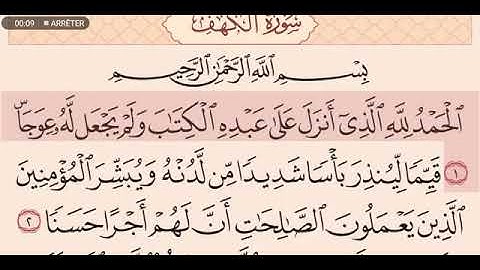 00:09 ■ ARRÊTER
سُورَةُ الْكَهْفِ
بِسْمِ اللَّهِ الرَّحْمَٰنِ الرَّحِيمِ
الْحَمْدُ لِلَّهِ الَّذِي أَنزَلَ عَلَىٰ عَبْدِهِ الْكِتَابَ وَلَمْ يَجْعَل لَّهُ عِوَجًا ۜ
١ قَيِّمًا لِّيُنذِرَ بَأْسًا شَدِيدًا مِّن لَّدُنْهُ وَيُبَشِّرَ الْمُؤْمِنِينَ
الَّذِينَ يَعْمَلُونَ الصَّالِحَاتِ أَنَّ لَهُمْ أَجْرًا حَسَنًا ٢